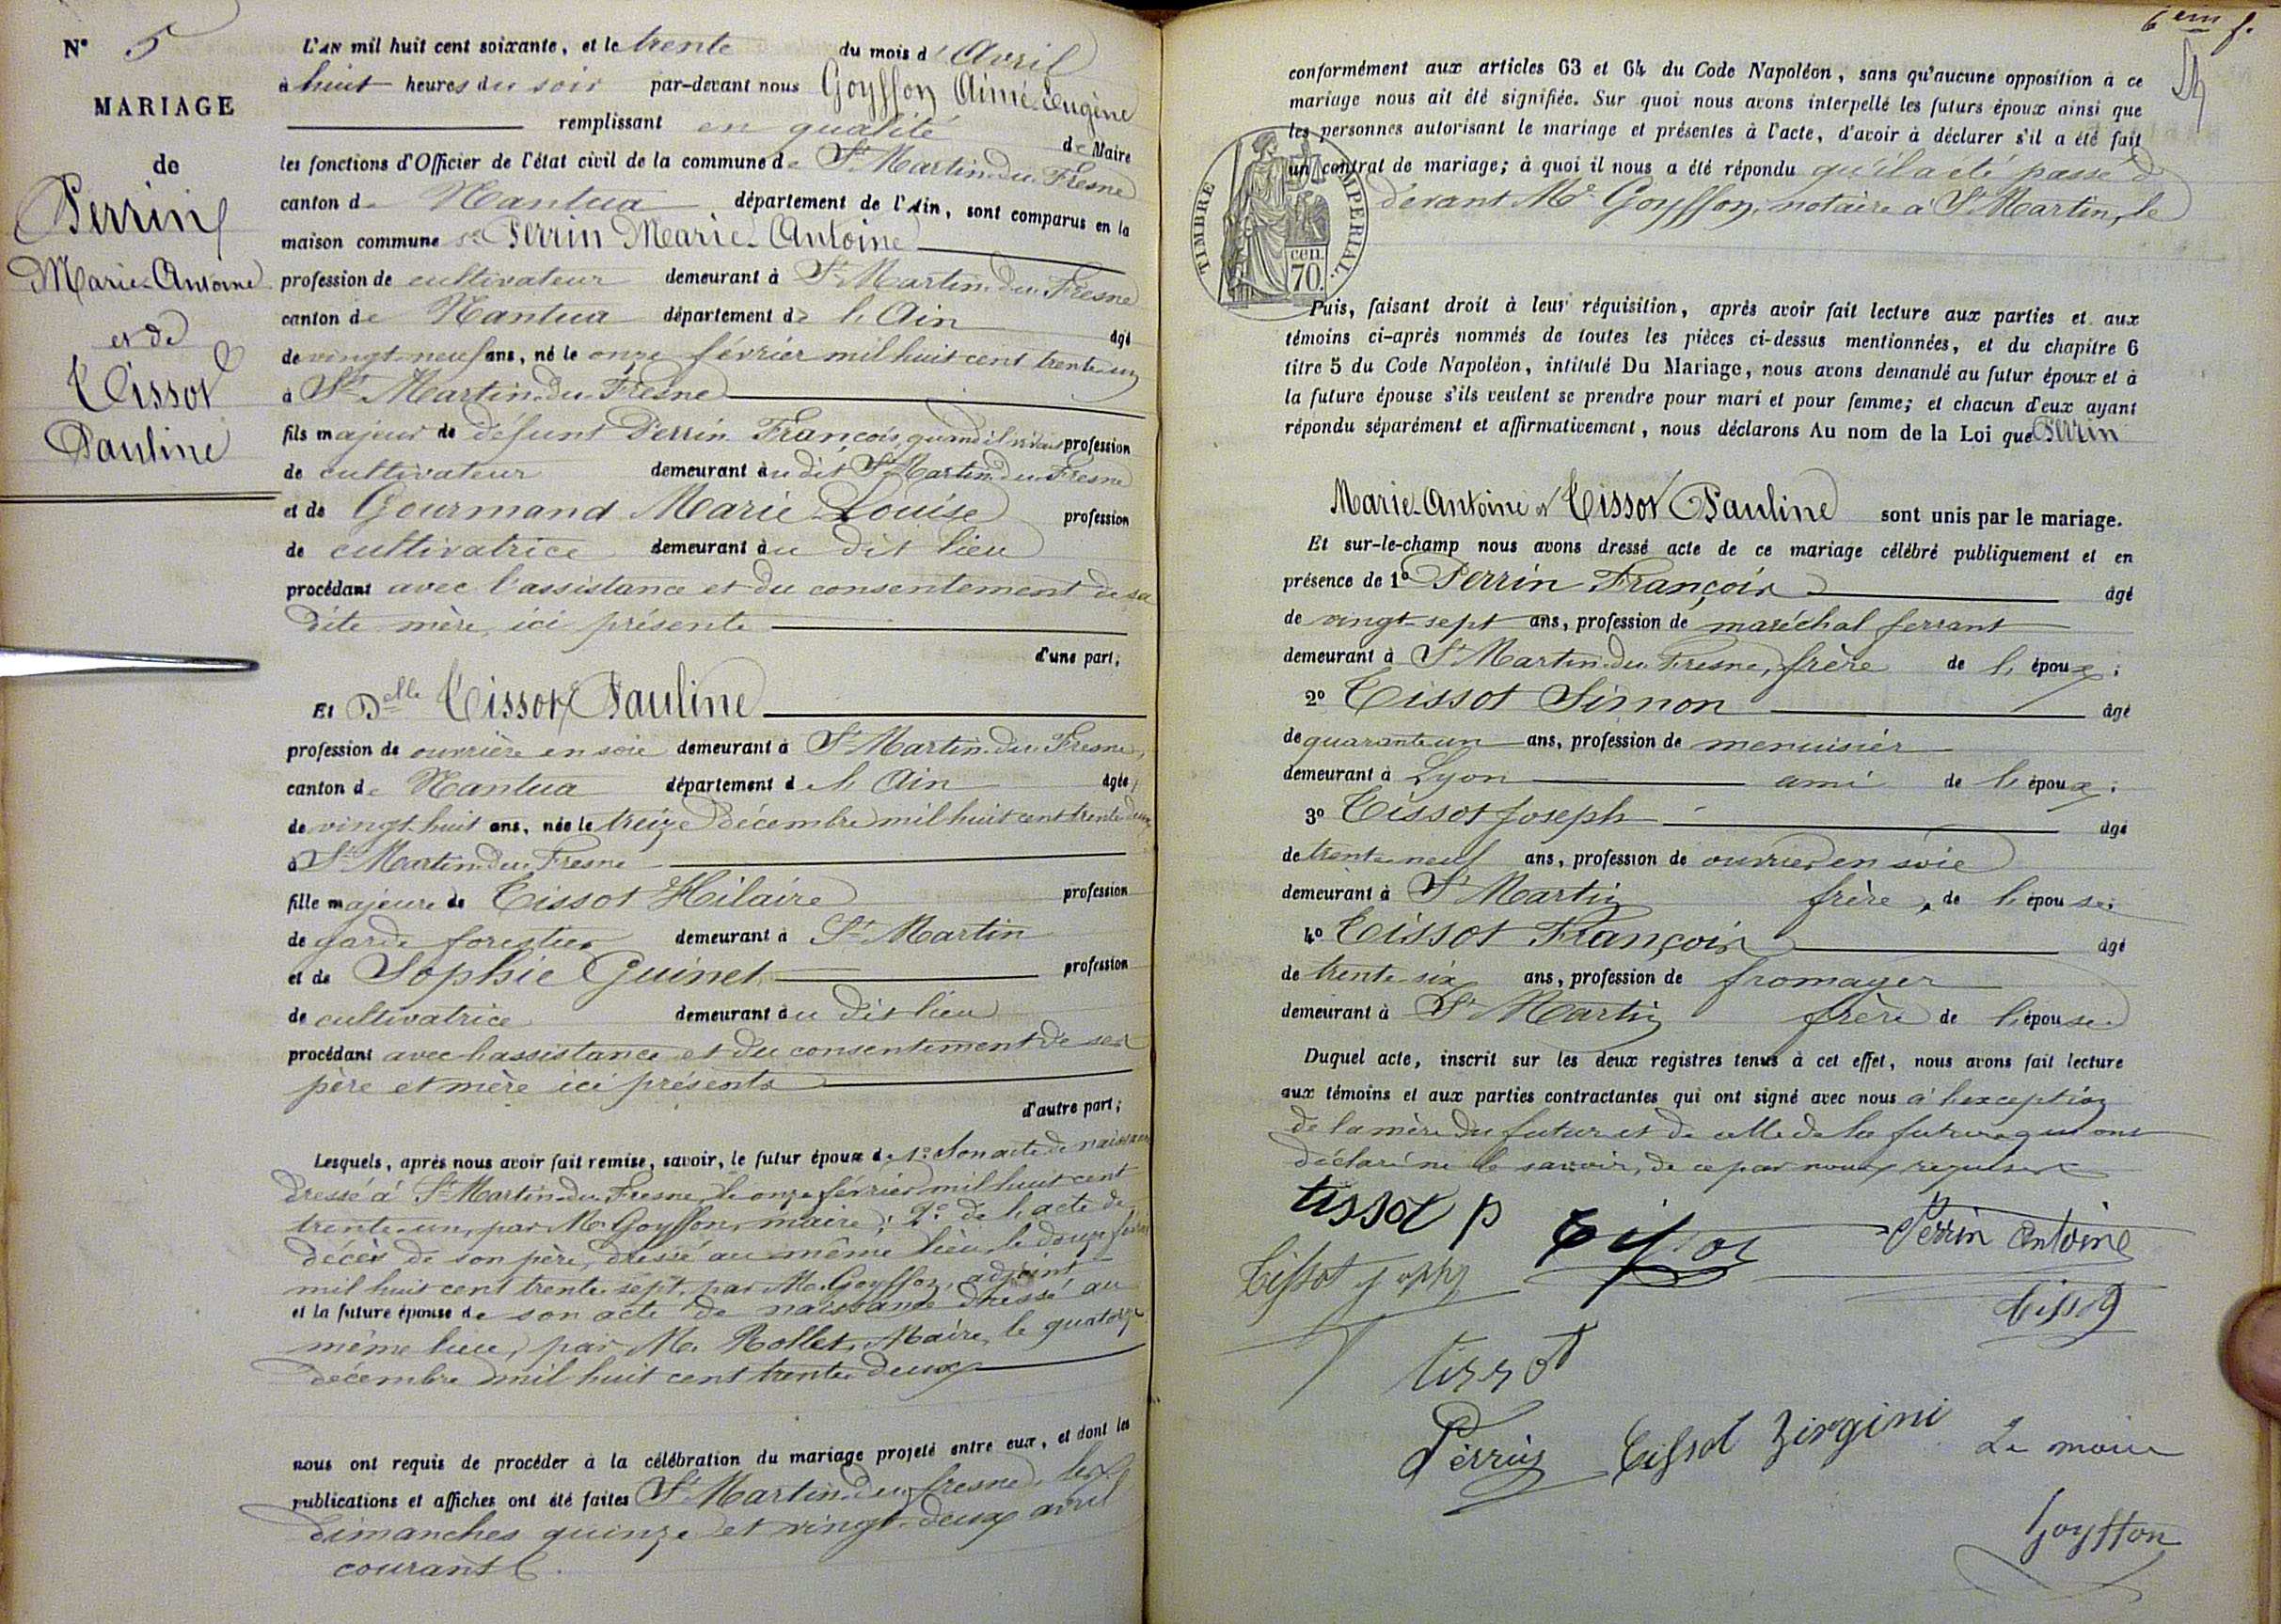 N° 5
MARIAGE
de
Perrin
Marie-Antoine
et de
Tissot
Pauline
L'AN mil huit cent soixante, et le trente du mois d'Avril
à huit heures du soir par-devant nous Goyffon Aimé Eugène
remplissant en qualité de Maire
les fonctions d'Officier de l'état civil de la commune de St Martin-du-Fresne
canton de Nantua département de l'Ain, sont comparus en la
maison commune sr Perrin Marie-Antoine
profession de cultivateur demeurant à St Martin-du-Fresne
canton de Nantua département de l'Ain âgé
de vingt-neuf ans, né le onze février mil huit cent trente-un
à St Martin-du-Fresne
fils majeur de défunt Perrin François, quand il vivait profession
de cultivateur demeurant au dit St Martin-du-Fresne
et de Gourmand Marie-Louise profession
de cultivatrice demeurant au dit lieu
procédant avec l'assistance et du consentement de sa
dite mère, ici présente
d'une part;
Et Delle Tissot Pauline
profession de ouvrière en soie demeurant à St Martin-du-Fresne,
canton de Nantua département de l'Ain âgée,
de vingt-huit ans, née le treize décembre mil huit cent trente-deux
à St Martin-du-Fresne
fille majeure de Tissot Hilaire profession
de garde forestier demeurant à St Martin
et de Sophie Guinet profession
de cultivatrice demeurant au dit lieu
procédant avec l'assistance et du consentement de ses
père et mère ici présents
d'autre part;
Lesquels, après nous avoir fait remise, savoir, le futur époux de 1° Son acte de naissance
dressé à St Martin-du-Fresne, le onze février mil huit cent
trente-un, par Mr Goyffon, maire; 2° de l'acte de
décès de son père, dressé au même lieu, le douze
mil huit cent trente-sept, par Mr Goyffon, adjoint
et la future épouse de son acte de naissance dressé au
même lieu, par Mr Rollet, Maire, le quatorze
décembre mil huit cent trente-deux
nous ont requis de procéder à la célébration du mariage projeté entre eux, et dont les
publications et affiches ont été faites St Martin-du-fresne, les
dimanches quinze et vingt-deux avril
courant.
6em f.
conformément aux articles 63 et 64 du Code Napoléon, sans qu'aucune opposition à ce
mariage nous ait été signifiée. Sur quoi nous avons interpellé les futurs époux ainsi que
les personnes autorisant le mariage et présentes à l'acte, d'avoir à déclarer s'il a été fait
un contrat de mariage; à quoi il nous a été répondu qu'il a été passé d
devant Me Goyffon, notaire à St Martin, le
TIMBRE IMPERIAL.
cen.
70.
Puis, faisant droit à leur réquisition, après avoir fait lecture aux parties et aux
témoins ci-après nommés de toutes les pièces ci-dessus mentionnées, et du chapitre 6
titre 5 du Code Napoléon, intitulé Du Mariage, nous avons demandé au futur époux et à
la future épouse s'ils veulent se prendre pour mari et pour femme; et chacun d'eux ayant
répondu séparément et affirmativement, nous déclarons Au nom de la Loi que Perrin
Marie-Antoine et Tissot Pauline sont unis par le mariage.
Et sur-le-champ nous avons dressé acte de ce mariage célébré publiquement et en
présence de 1° Perrin François âgé
de vingt-sept ans, profession de maréchal ferrant
demeurant à St Martin-du-Fresne, frère de l'époux;
2° Tissot Simon âgé
de quarante-un ans, profession de menuisier
demeurant à Lyon ami de l'époux;
3° Tissot Joseph âgé
de trente-neuf ans, profession de ouvrier en soie
demeurant à St Martin frère, de l'épouse;
4° Tissot François âgé
de trente-six ans, profession de fromager
demeurant à St Martin frère de l'épouse.
Duquel acte, inscrit sur les deux registres tenus à cet effet, nous avons fait lecture
aux témoins et aux parties contractantes qui ont signé avec nous à l'exception
de la mère du futur et de celle de la future qui ont
déclaré ne le savoir, de ce par nous requises
tissot p Tissot Perrin antoine
tissot joseph
tissot
tissot
Perrin tissot Virgini Le maire
Goyffon